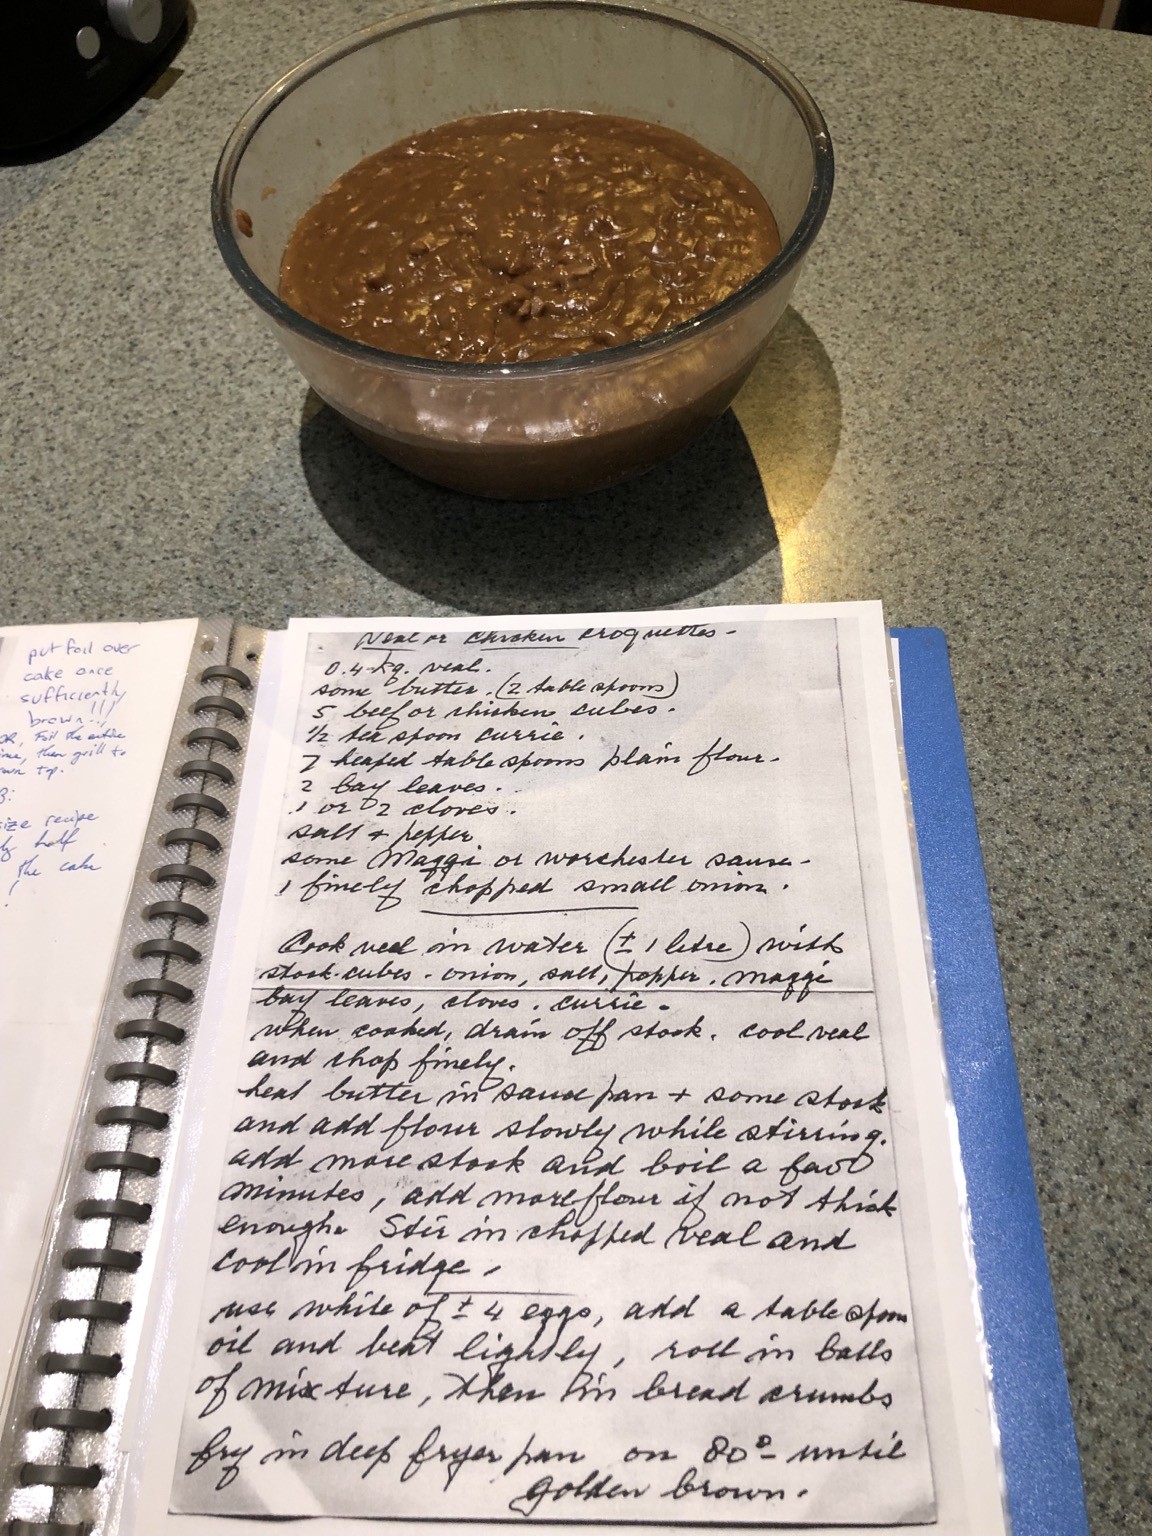 put foil over
cake once
sufficiently
brown!!!
OR, Foil the entire
time, then grill to
top.
size recipe
half
the cake
!
Veal or chicken croquettes-
0.4 kg. veal.
some butter. (2 table spoons)
5 beef or chicken cubes.
1/2 tea spoon currie.
7 heaped table spoons plain flour.
2 bay leaves.
1 or 2 cloves.
salt + pepper
some Maggi or worchester sause-
1 finely chopped small onion.
Cook veal in water (± 1 litre) with
stock-cubes - onion, salt, pepper. maggi
bay leaves, cloves. currie.
when cooked, drain off stock. cool veal
and chop finely.
heat butter in sauce pan + some stock
and add flour slowly while stirring.
add more stock and boil a few
minutes, add more flour if not thick
enough. Stir in chopped veal and
cool in fridge.
use white of ± 4 eggs, add a table spoon
oil and beat lightly, roll in balls
of mixture, then in bread crumbs
fry in deep fryer pan on 80° until
golden brown.